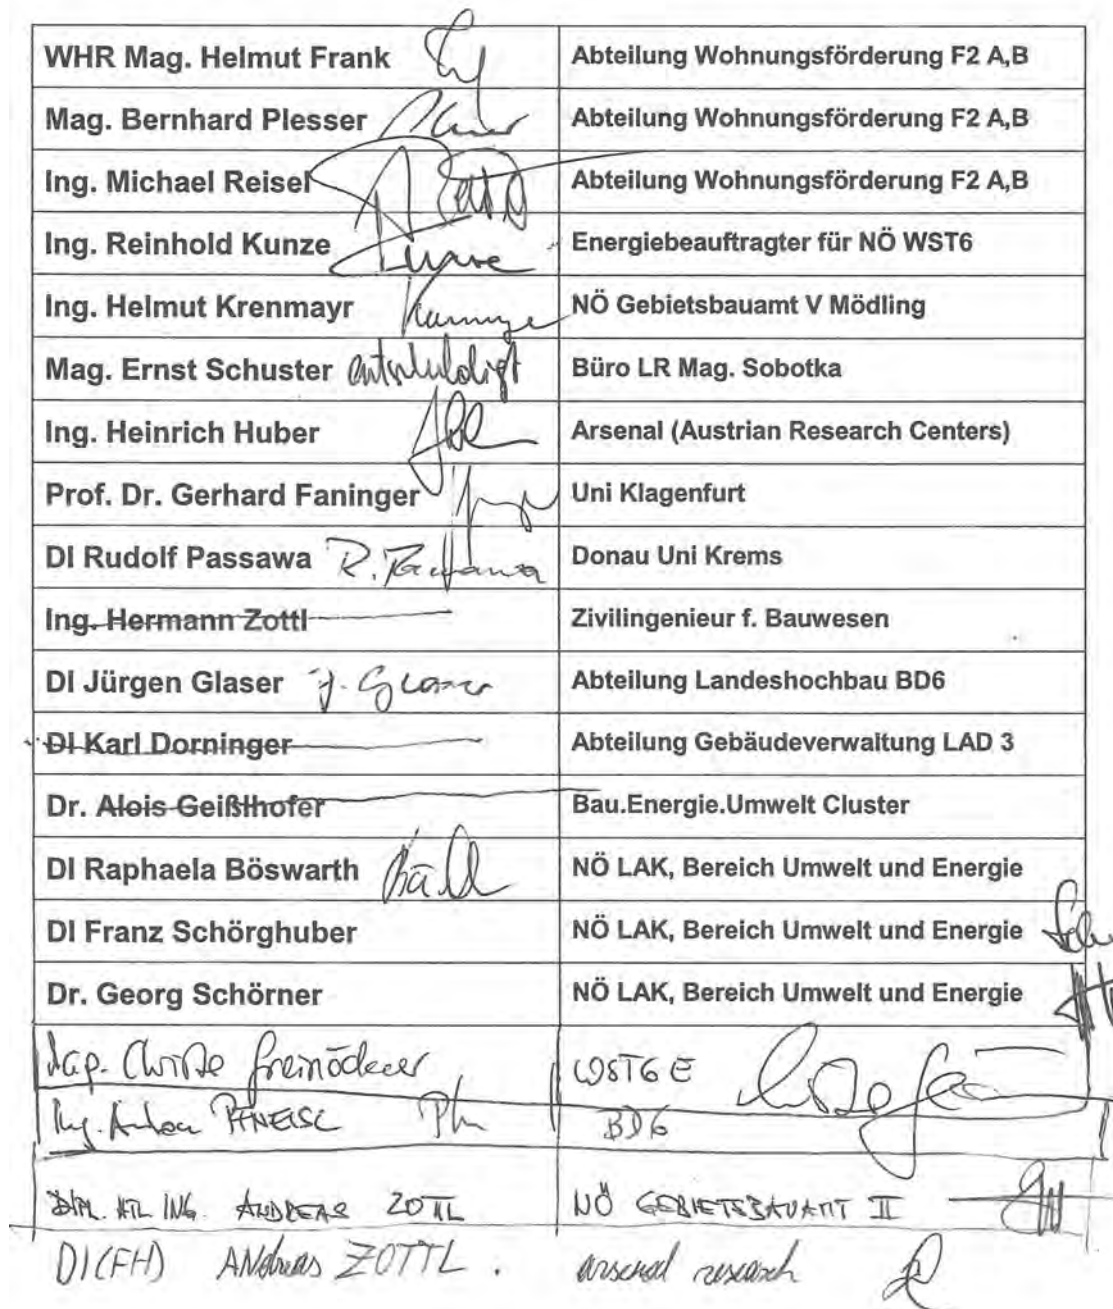 WHR Mag. Helmut Frank Abteilung Wohnungsförderung F2 A,B
Mag. Bernhard Plesser Abteilung Wohnungsförderung F2 A,B
Ing. Michael Reisel Abteilung Wohnungsförderung F2 A,B
Ing. Reinhold Kunze Energiebeauftragter für NÖ WST6
Ing. Helmut Krenmayr NÖ Gebietsbauamt V Mödling
Mag. Ernst Schuster entschuldigt Büro LR Mag. Sobotka
Ing. Heinrich Huber Arsenal (Austrian Research Centers)
Prof. Dr. Gerhard Faninger Uni Klagenfurt
DI Rudolf Passawa R. Passawa Donau Uni Krems
Ing. Hermann Zottl Zivilingenieur f. Bauwesen
DI Jürgen Glaser J. Glaser Abteilung Landeshochbau BD6
DI Karl Dorninger Abteilung Gebäudeverwaltung LAD 3
Dr. Alois Geißlhofer Bau.Energie.Umwelt Cluster
DI Raphaela Böswarth NÖ LAK, Bereich Umwelt und Energie
DI Franz Schörghuber NÖ LAK, Bereich Umwelt und Energie
Dr. Georg Schörner NÖ LAK, Bereich Umwelt und Energie
WST6 E
Ing. BD6
DIPL. HTL ING. ANDREAS ZOTTL NÖ GEBIETSBAUAMT II
DI(FH) ANdreas ZOTTL. arsenal research